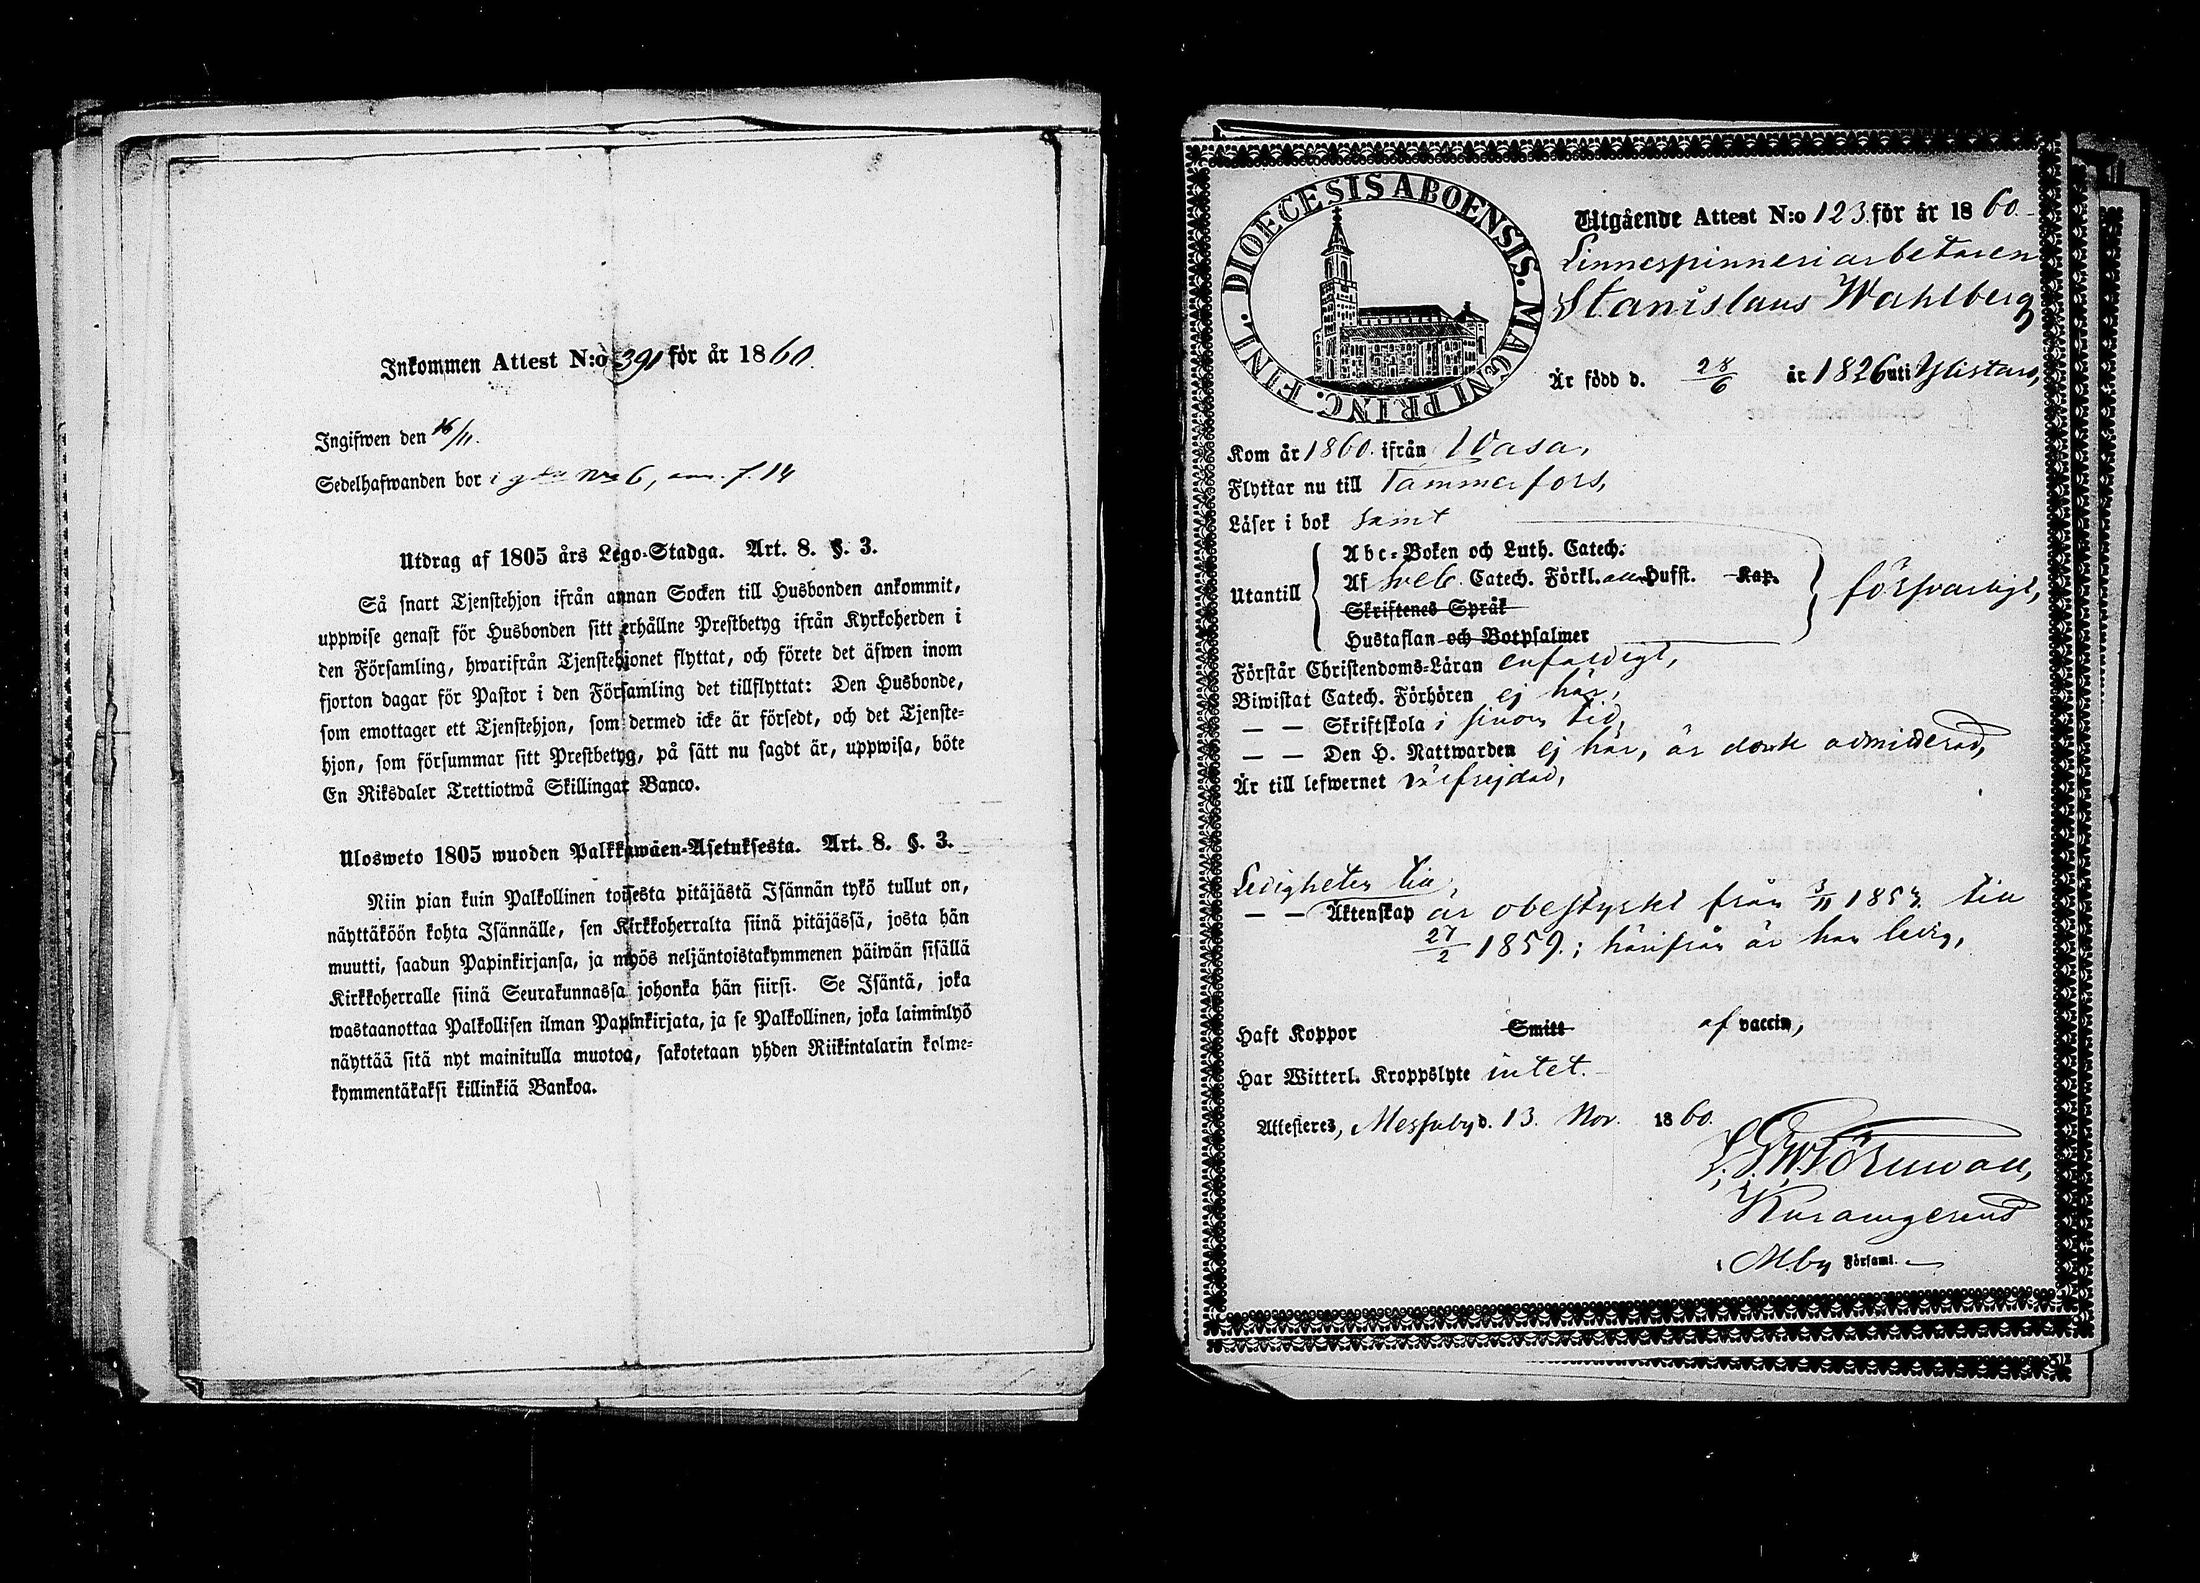 Inkommen Attest N:o 391 för år 1860.
Ingifwen den 16/11.
Sedelhafwanden bor i g N:o 6, p. 14
Utdrag af 1805 års Lego-Stadga. Art. 8. §. 3.
Så snart Tjenstehjon ifrån annan Socken till Husbonden ankommit,
uppwise genast för Husbonden sitt erhållne Prestbetyg ifrån Kyrkoherden i
den Församling, hwarifrån Tjenstehjonet flyttat, och förete det äfwen inom
fjorton dagar för Pastor i den Församling det tillflyttat: Den Husbonde,
som emottager ett Tjenstehjon, som dermed icke är försedt, och det Tjenste-
hjon, som försummar sitt Prestbetyg, på sätt nu sagdt är, uppwisa, böte
En Riksdaler Trettiotwå Skillingar Banco.
Ulosweto 1805 wuoden Palkkawäen-Asetuksesta. Art. 8. §. 3.
Niin pian kuin Palkollinen toisesta pitäjästä Isännän tykö tullut on,
näyttäköön kohta Isännälle, sen Kirkkoherralta siinä pitäjässä, josta hän
muutti, saadun Papinkirjansa, ja myös neljäntoistakymmenen päiwän sisällä
Kirkkoherralle siinä Seurakunnassa johonka hän siirsi. Se Isäntä, joka
wastaanottaa Palkollisen ilman Papinkirjata, ja se Palkollinen, joka laiminlyö
näyttää sitä nyt mainitulla muotoa, sakotetaan yhden Riikintalarin kolme-
kymmentäkaksi killinkiä Bankoa.
DIOECESIS ABOENSIS. MAGNI PRINC. FINL.
Utgående Attest N:o 123. för år 1860.
Linnespinneriarbetaren
Stanislaus Wahlberg
Är född d. 28/6 år 1826 uti Ylistaro,
Kom år 1860. ifrån Wasa,
Flyttar nu till Tammerfors,
Läser i bok samt
Abc-Boken och Luth. Catech.
Utantill Af Sveb. Catech. Förkl. Hufst. Kap. försvarligt,
Skriftenes Språk
Hustaflan och Botpsalmer
Förstår Christendoms-Läran enfaldigt,
Biwistat Catech. Förhören ej här,
— — Skriftskola i sinom tid,
— — Den H. Nattwarden ej här, är dock admitterad,
Är till lefwernet välfrejdad,
Ledigheten till
— — Äktenskap är obestyrkt från 3/11 1857. till
27/2 1859.; härifrån är han ledig,
Haft Koppor Smitt af vaccin,
Har Witterl. Kroppslyte intet.
Attesteres, Messuby d. 13. Nov. 1860.
Törnwall,
M:by Församl.